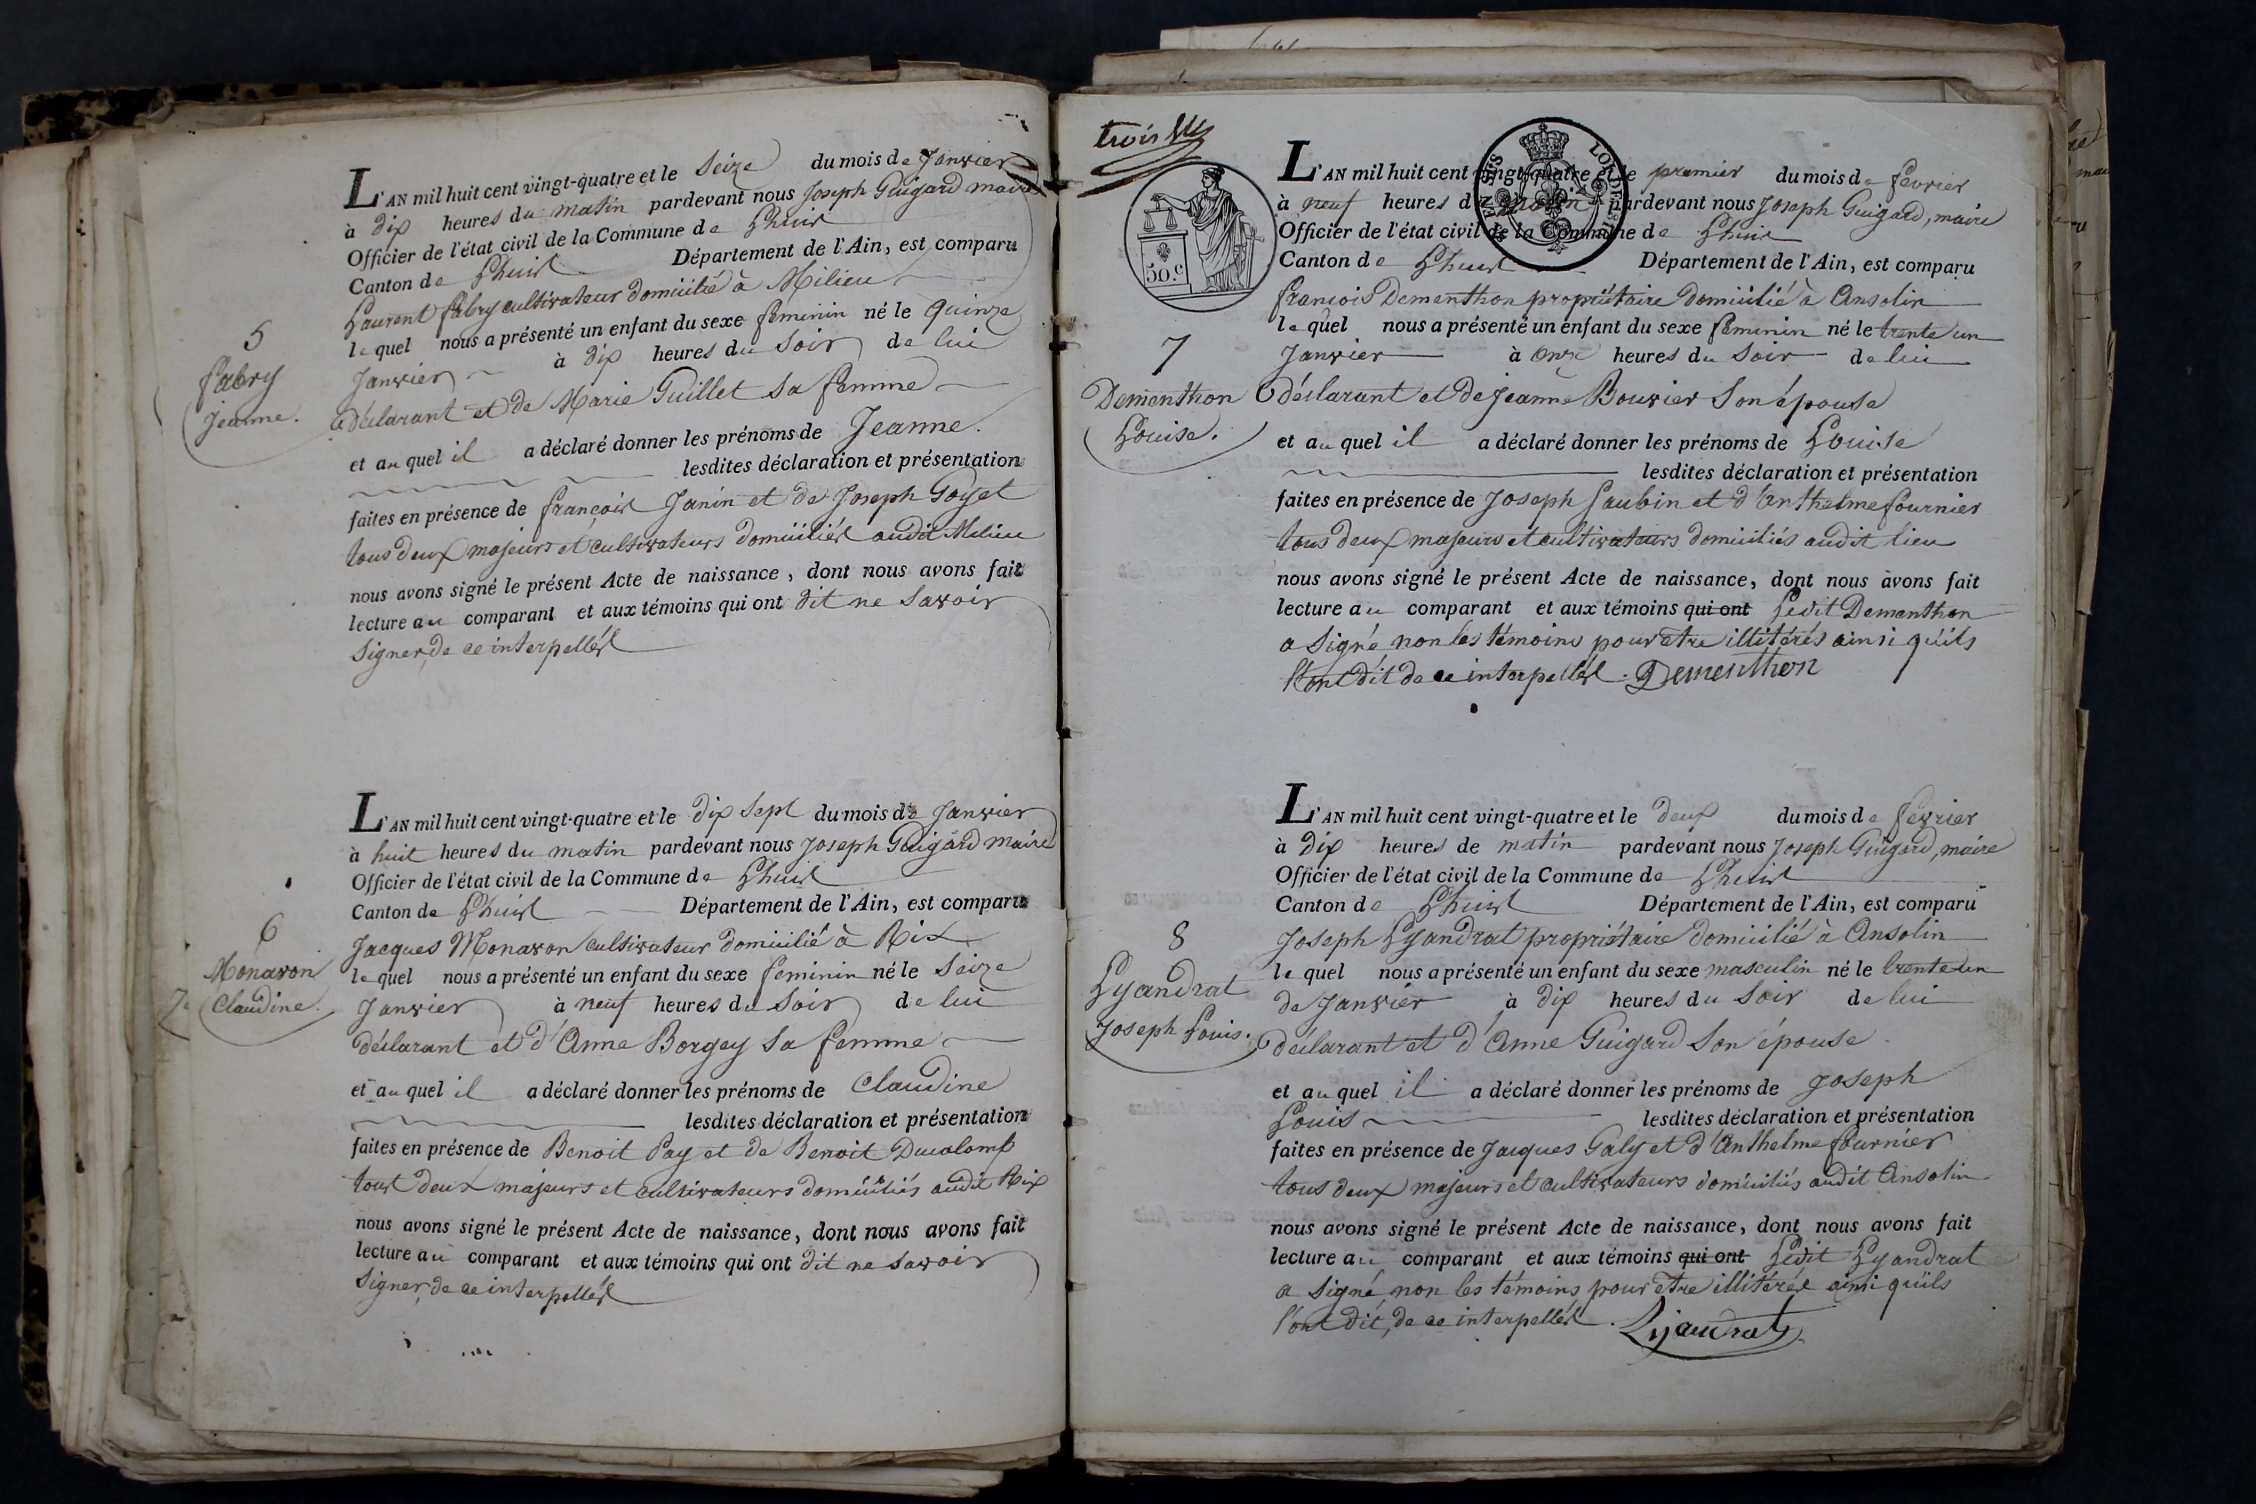 L'AN mil huit cent vingt-quatre et le Seize du mois de Janvier
à dix heures du matin pardevant nous Joseph Guigard maire
Officier de l'état civil de la Commune de Lhuis
Canton de Lhuis Département de l'Ain, est comparu
Laurent fabry cultivateur domicilié à Milieu
le quel nous a présenté un enfant du sexe feminin né le quinze
Janvier à dix heures du Soir de lui
déclarant et de Marie Guillet Sa femme
et au quel il a déclaré donner les prénoms de Jeanne.
lesdites déclaration et présentation
faites en présence de françois Janin et de Joseph Goyet
tous deux majeurs et cultivateurs domiciliés audit Milieu
nous avons signé le présent Acte de naissance, dont nous avons fait
lecture au comparant et aux témoins qui ont dit ne Savoir
Signer, de ce interpellés
5
fabry
Jeanne.
L'AN mil huit cent vingt-quatre et le dix Sept du mois de Janvier
à huit heures du matin pardevant nous Joseph Guigard maire
Officier de l'état civil de la Commune de Lhuis
Canton de Lhuis Département de l'Ain, est comparu
Jacques Monavon cultivateur domicilié à Rix
le quel nous a présenté un enfant du sexe feminin né le Seize
Janvier à neuf heures du Soir de lui
déclarant et d'Anne Borgey Sa femme
et au quel il a déclaré donner les prénoms de Claudine
lesdites déclaration et présentation
faites en présence de Benoit Pay et de Benoit Ducolomb
tous deux majeurs et cultivateurs domiciliés audit Rix
nous avons signé le présent Acte de naissance, dont nous avons fait
lecture au comparant et aux témoins qui ont dit ne Savoir
Signer, de ce interpellés
6
Monavon
Claudine.
trois
50.c
L'AN mil huit cent vingt-quatre et le premier du mois de fevrier
à neuf heures du matin pardevant nous Joseph Guigard, maire
Officier de l'état civil de la Commune de Lhuis
Canton de Lhuis Département de l'Ain, est comparu
francois Dementhon propriétaire domicilié à Ansolin
le quel nous a présenté un enfant du sexe feminin né le trente un
Janvier à onze heures du Soir de lui
déclarant et de Jeanne Bouvier Son épouse
et au quel il a déclaré donner les prénoms de Louise
lesdites déclaration et présentation
faites en présence de Joseph Jaubin et d'Anthelme fournier
tous deux majeurs et cultivateurs domiciliés audit lieu
nous avons signé le présent Acte de naissance, dont nous avons fait
lecture au comparant et aux témoins qui ont Ledit Dementhon
a Signé non les témoins pour être illitérés ainsi qu'ils
l'ont dit de ce interpellés. Dementhon
7
Dementhon
Louise.
L'AN mil huit cent vingt-quatre et le deux du mois de fevrier
à dix heures de matin pardevant nous Joseph Guigard, maire
Officier de l'état civil de la Commune de Lhuis
Canton de Lhuis Département de l'Ain, est comparu
Joseph Lyandrat propriétaire domicilié à Ansolin
le quel nous a présenté un enfant du sexe masculin né le trente un
de Janvier à dix heures du Soir de lui
déclarant et d'Anne Guigard Son épouse
et au quel il a déclaré donner les prénoms de Joseph
Louis lesdites déclaration et présentation
faites en présence de Jacques Galy et d'Anthelme fournier
tous deux majeurs et cultivateurs domiciliés audit Ansolin
nous avons signé le présent Acte de naissance, dont nous avons fait
lecture au comparant et aux témoins qui ont Ledit Lyandrat
a Signé, non les témoins pour être illitérés ainsi qu'ils
l'ont dit, de ce interpellés. Lijandrat
8
Lyandrat
Joseph Louis.